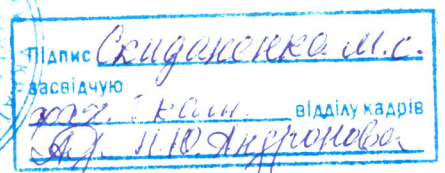 Підпис Скиданенка М.С.
засвідчую
відділу кадрів
Н.Ю.Андронова